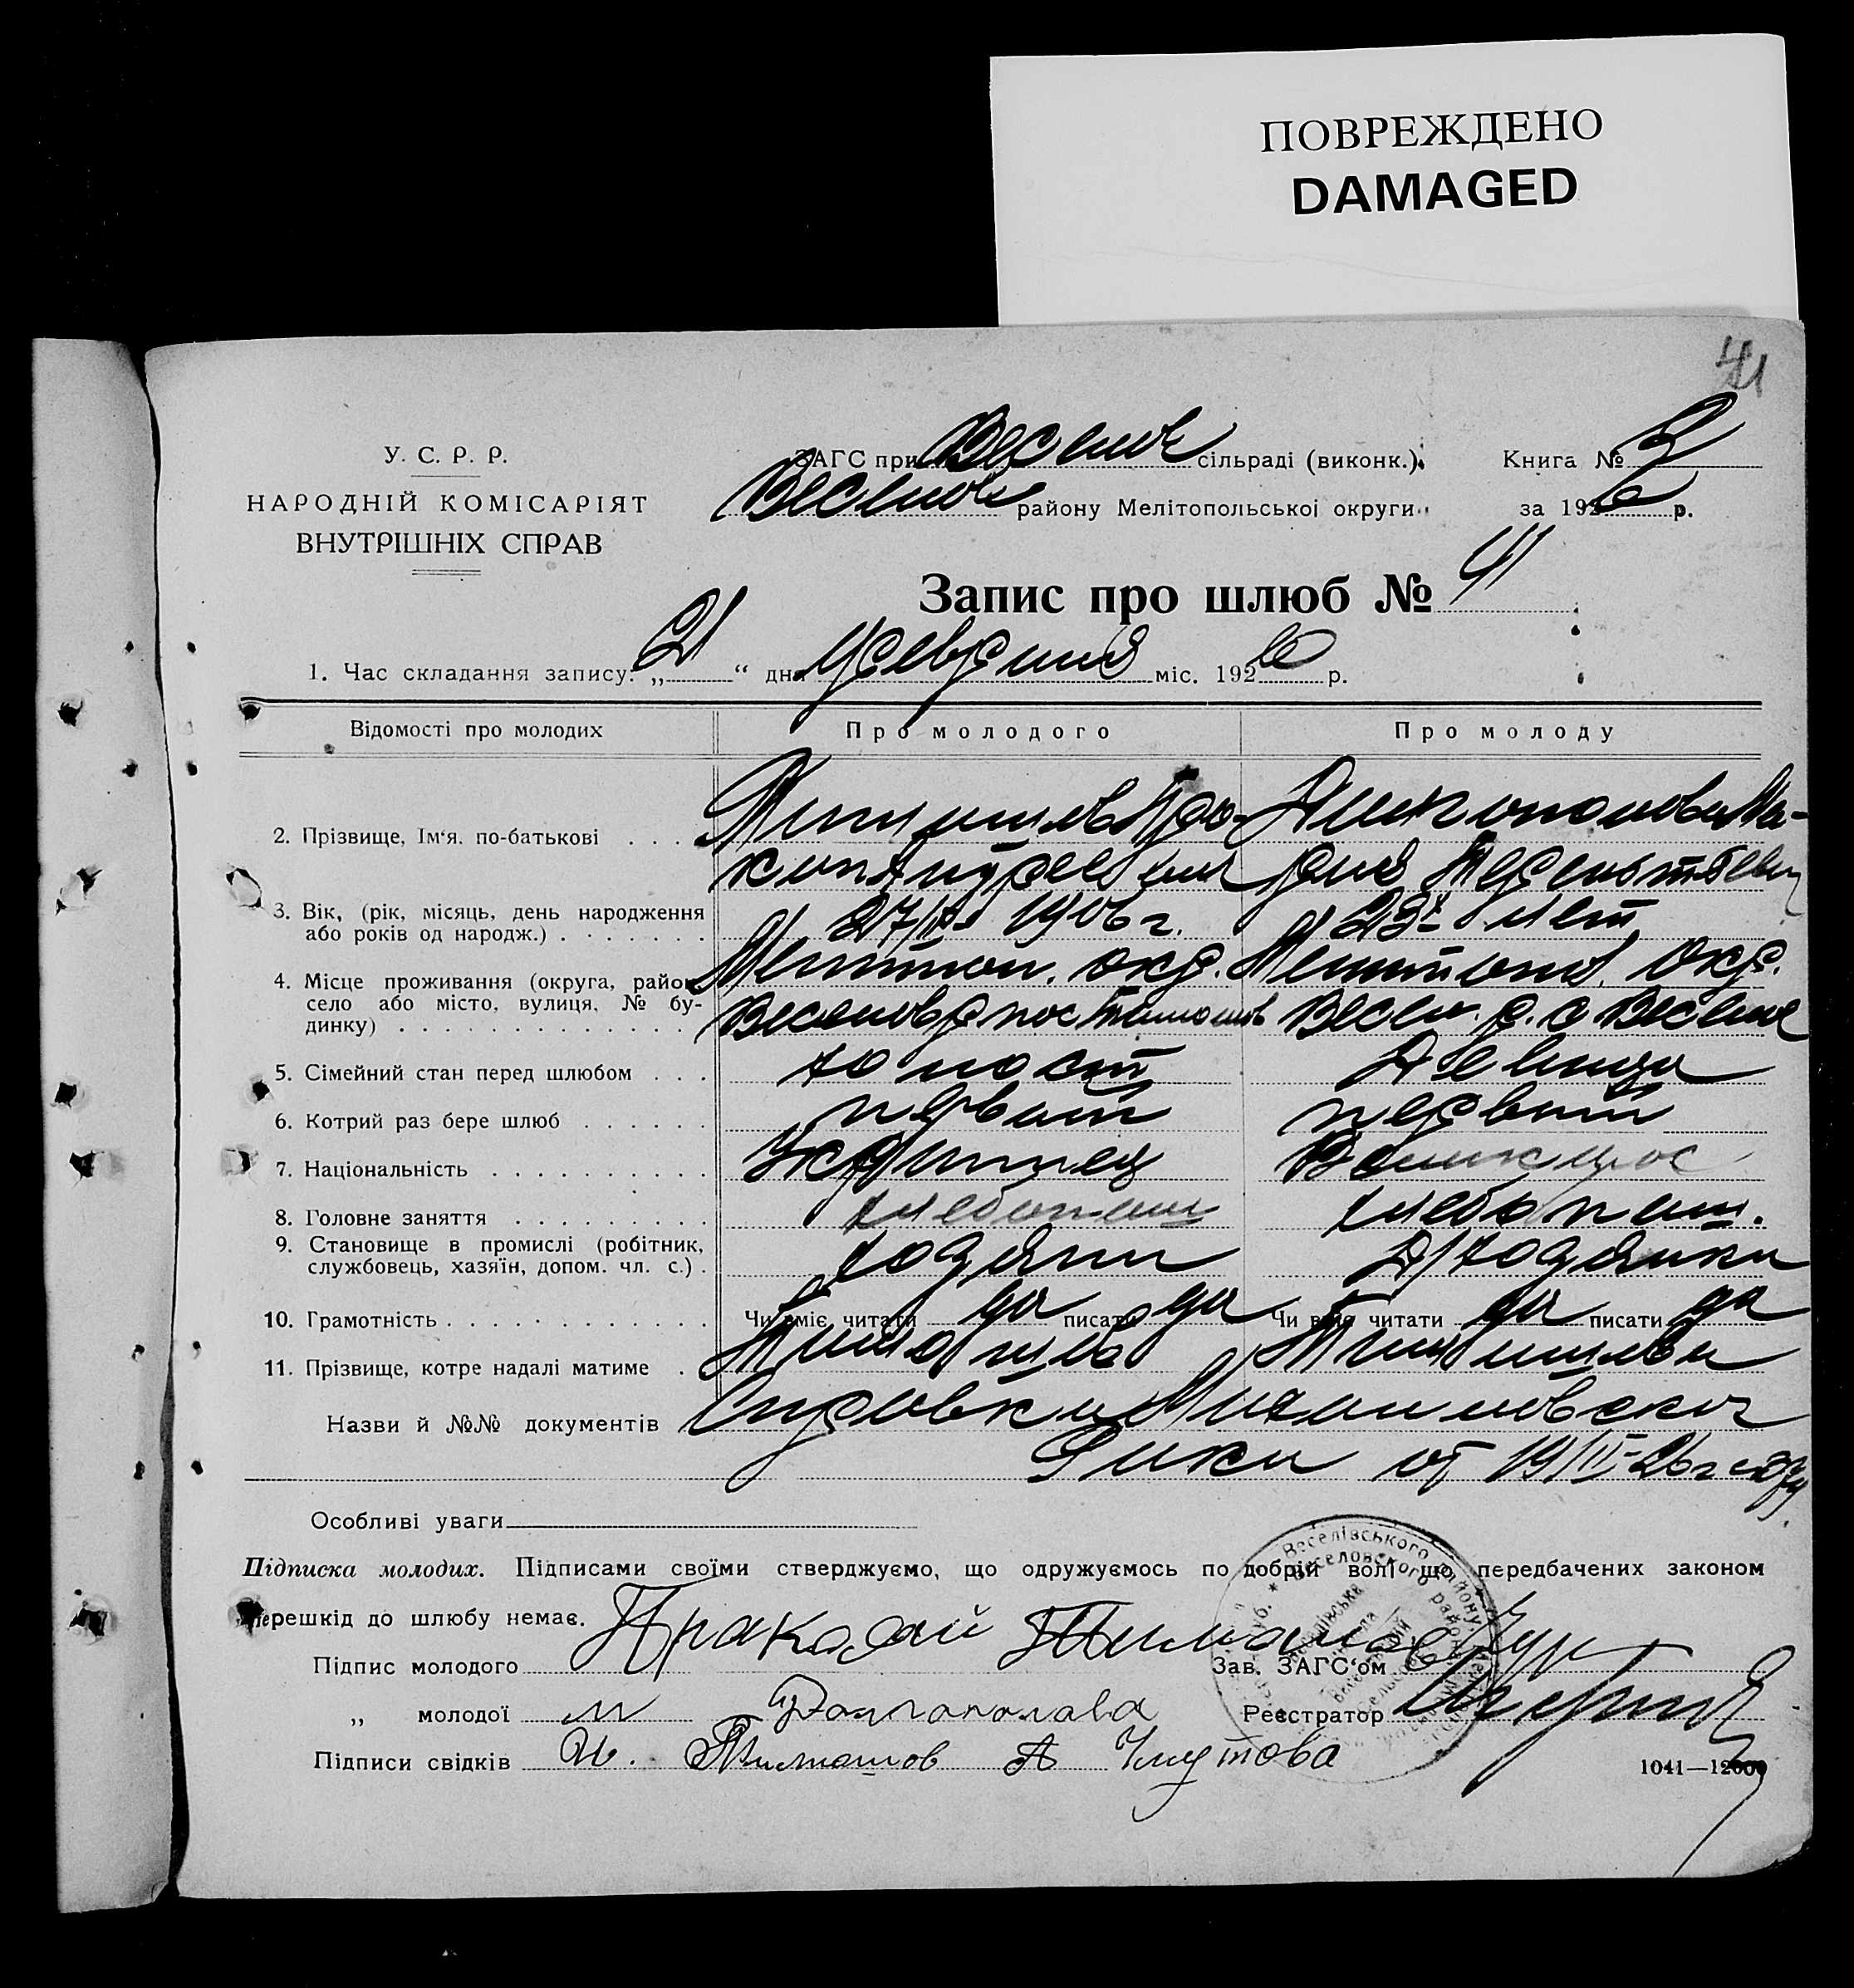 ПОВРЕЖДЕНО
DAMAGED
41
У. С. Р. Р.
НАРОДНІЙ КОМІСАРІЯТ
ВНУТРІШНІХ СПРАВ
ЗАГС при Весел сільраді (виконк.)
Весел району Мелітопольської округи
Книга № 3
за 1926 р.
Запис про шлюб № 41
1. Час складання запису: „21“ дня февраля міс. 1926 р.
Відомості про молодих
Про молодого
Про молоду
2. Прізвище, Ім‘я, по-батькові . . . .
Тимашов Про-
коп Андреевич
Долгополова Ма-
рия Терентьевн
3. Вік, (рік, місяць, день народження
або років од народж.) . . . . . . .
1906 г.
23 лет
4. Місце проживання (округа, район,
село або місто, вулиця, № бу-
динку) . . . . . . . . . . . . . .
Мелитоп. окр.
Веселов р пос Тимошов
Мелитопол. Окр.
Весел. р. с Веселое
5. Сімейний стан перед шлюбом . . .
холост
Девица
6. Котрий раз бере шлюб . . . . . .
первый
первый
7. Національність . . . . . . . . . .
Украинец
Великорос
8. Головне заняття . . . . . . . . .
хлебопаш
хлебопаш.
9. Становище в промислі (робітник,
службовець, хазяїн, допом. чл. с.) .
хозяин
Д/хозяйки
10. Грамотність . . . . . . . . . . . .
Чи вміє читати да писати да
Чи вміє читати да писати да
11. Прізвище, котре надалі матиме .
Тимошов
Тимошова
Назви й №№ документів Справка Михайловской
от 19/II-26 г
Особливі уваги
Підписка молодих. Підписами своїми стверджуємо, що одружуємось по добрій волі що передбачених законом
перешкід до шлюбу немає.
Підпис молодого Тимашов
Зав. ЗАГС‘ом
„ молодої М Долгополава
Реєстратор
Підписи свідків И. Тимошов А
1041—12000